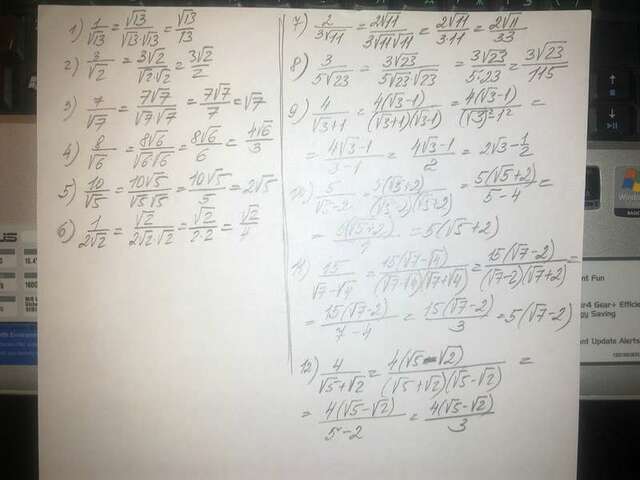 1) 1/√13 = √13/(√13·√13) = √13/13
2) 3/√2 = 3√2/(√2√2) = 3√2/2
3) 7/√7 = 7√7/(√7√7) = 7√7/7 = √7
4) 8/√6 = 8√6/(√6√6) = 8√6/6 = 4√6/3
5) 10/√5 = 10√5/(√5√5) = 10√5/5 = 2√5
6) 1/(2√2) = √2/(2√2·√2) = √2/(2·2) = √2/4
7) 2/(3√11) = 2√11/(3√11√11) = 2√11/(3·11) = 2√11/33
8) 3/(5√23) = 3√23/(5√23√23) = 3√23/(5·23) = 3√23/115
9) 4/(√3+1) = 4(√3-1)/((√3+1)(√3-1)) = 4(√3-1)/((√3)²-1²) =
= (4√3-1)/(3-1) = (4√3-1)/2 = 2√3-1/2
10) 5/(√5-2) = 5(√5+2)/((√5-2)(√5+2)) = 5(√5+2)/(5-4) =
= 5(√5+2)/1 = 5(√5+2)
11) 15/(√7-√4) = 15(√7-√4)/((√7-√4)(√7+√4)) = 15(√7-2)/((√7-2)(√7+2)) =
= 15(√7-2)/(7-4) = 15(√7-2)/3 = 5(√7-2)
12) 4/(√5+√2) = 4(√5-√2)/((√5+√2)(√5-√2)) =
= 4(√5-√2)/(5-2) = 4(√5-√2)/3
Windows
ent Fun
er4 Gear+ Efficie
gy Saving
oard Update Alerts